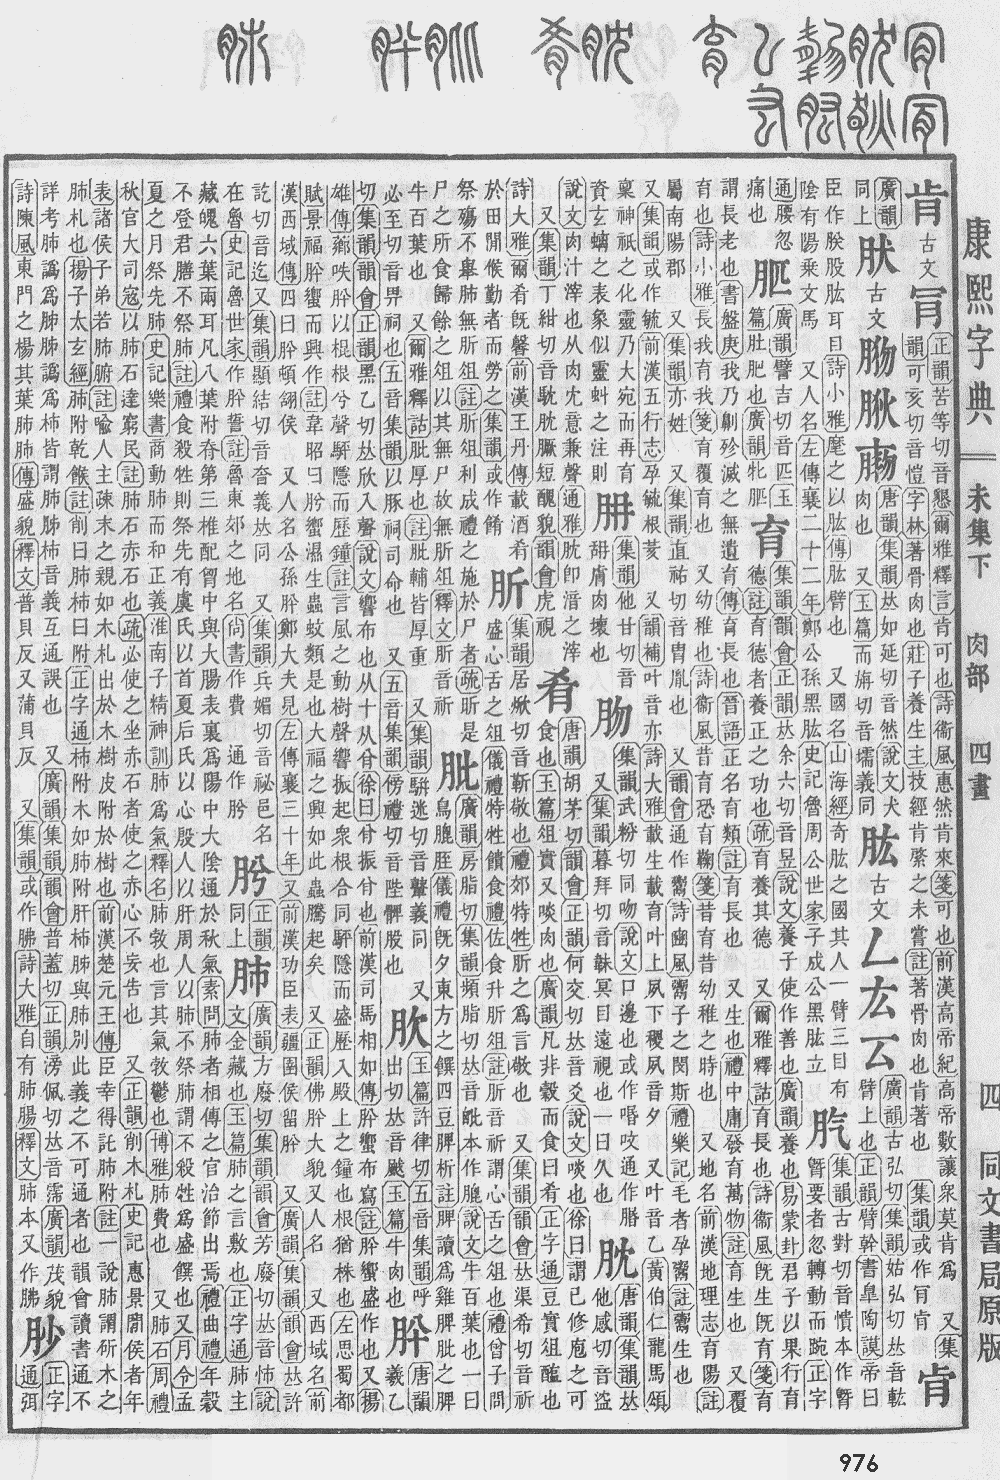 康熙字典 未集下 肉部 四畫 四 同文書局原版
肯 古文 肎
正韻苦等切音懇爾雅釋言肯可也詩衞風惠然肯來箋可也前漢高帝紀高帝數讓衆莫肯爲 又集
韻可亥切音愷字林著骨肉也莊子養生主技經肯綮之未嘗註著骨肉也肯著也 集韻或作肎肻
肻
廣韻
同上
肰 古文
唐韻集韻𠀤如延切音然說文犬
肉也 又玉篇而㫋切音壖義同
肱 古文 厶 厷
廣韻古弘切集韻姑弘切𠀤音軷
臂上也正韻臂幹書臯陶謨帝曰
臣作朕股肱耳目詩小雅麾之以肱傳肱臂也 又國名山海經奇肱之國其人一臂三目有
陰有陽乗文馬 又人名左傳襄二十二年鄭公孫黑肱史記魯周公世家子成公黑肱立
集韻古對切音憒本作㬰
㬰要者忽轉動而踠正字
通腰忽
痛也
廣韻譬吉切音匹玉
篇肶也廣韻牝
育
集韻韻會正韻𠀤余六切音昱說文養子使作善也廣韻養也易蒙卦君子以果行育
德註育德者養正之功也疏育養其德 又爾雅釋詁育長也詩衞風旣生旣育箋育
謂長老也書盤庚我乃劓殄滅之無遺育傳育長也晉語正名育類註育長也 又生也禮中庸發育萬物註育生也 又覆
育也詩小雅長我育我箋育覆育也 又幼稚也詩衞風昔育恐育鞫箋昔育育昔幼稚之時也 又地名前漢地理志育陽註
屬南陽郡 又集韻亦姓 又集韻直祐切音冑胤也 又韻會通作鬻詩豳風鬻子之閔斯禮樂記毛者孕鬻註鬻生也
又集韻或作毓前漢五行志孕毓根荄 又韻補叶音亦詩大雅載生載育叶上夙下稷夙音夕 又叶音乙黃伯仁龍馬頌
稟神祇之化靈乃大宛而再育
資玄螭之表象似靈虯之注則
集韻他甘切音
肉壞也
肳
集韻武粉切同吻說文口邊也或作㖧呅通作脗
又集韻暮拜切音韎冥目遠視也一曰久也
肬
唐韻集韻𠀤
他感切音盜
說文肉汁滓也从肉冘意兼聲通雅肬卽湆之滓
又集韻丁紺切音馾肬𦠆短醜貌韻會虎視
肴
唐韻胡茅切韻會正韻何交切𠀤音爻說文啖也徐曰謂已修庖之可
食也玉篇俎實又啖肉也廣韻凡非穀而食曰肴正字通豆實俎醢也
詩大雅爾肴旣馨前漢王丹傳載酒肴
於田閒候勤者而勞之集韻或作餚
肵
集韻居焮切音靳敬也禮郊特牲肵之爲言敬也 又集韻韻會𠀤渠希切音祈
盛心舌之俎儀禮特牲饋食禮佐食升肵俎註肵音祈謂心舌之俎也禮曾子問
祭殤不舉肺無肵俎註肵俎利成禮之施於尸者疏肵是
尸之所食歸餘之俎以其無尸故無肵俎釋文肵音祈
肶
廣韻房脂切集韻頻脂切𠀤音毗本作膍說文牛百葉也一曰
鳥膍胵儀禮旣夕東方之饌四豆脾析註脾讀爲雞脾肶之脾
牛百葉也 又爾雅釋詁肶厚也註肶輔皆厚重 又集韻騈迷切音鼙義同 又
必至切音畀祠也五音集韻以豚祠司命也 又五音集韻傍禮切音陛髀股也
玉篇許律切五音集韻呼
出切𠀤音颰玉篇牛肉也
肸
唐韻
羲乙
切集韻韻會正韻黑乙切𠀤欣入聲說文響布也从十从㑞徐曰㑞振㑞也前漢司馬相如傳肸蠁布寫註肸蠁盛作也又揚
雄傳薌呹肸以棍根兮聲駍隱而歷鐘註言風之動樹聲響振起衆根合同駍隱而盛歷入殿上之鐘也根猶株也左思蜀都
賦景福肸蠁而興作註韋昭曰肸蠁濕生蟲蚊類是也大福之興如此蟲騰起矣 又正韻佛肸大貌又人名 又西域名前
漢西域傳四曰肸頓翖侯 又人名公孫肸鄭大夫見左傳襄三十年又前漢功臣表疆圉侯留肸 又廣韻集韻𠀤許
訖切音迄又集韻顯結切音㚛義𠀤同 又集韻兵媚切音祕邑名
在魯史記魯世家作肸誓註魯東郊之地名尙書作費 通作肹
肹 同上
肺
正韻廣韻方廢切集韻韻會芳廢切𠀤音怖說
文金藏也玉篇肺之言敷也正字通肺主
藏魄六葉兩耳凡八葉附脊第三椎配胷中與大腸表裏爲陽中大陰通於秋氣素問肺者相傳之官治節出焉禮曲禮年穀
不登君膳不祭肺註禮食殺牲則祭先有虞氏以首夏后氏以心殷人以肝周人以肺不祭肺謂不殺牲爲盛饌也又月令孟
夏之月祭先肺史記樂書商動肺而和正義淮南子精神訓肺爲氣釋名肺敦也言其氣敦鬱也博雅肺費也 又肺石周禮
秋官大司寇以肺石達窮民註肺石赤石也疏必使之坐赤石者使之赤心不妄告也 又正韻削木札史記惠景閒侯者年
表諸侯子弟若肺腑註喩人主疎末之親如木札出於木樹皮附於樹也前漢楚元王傳臣幸得託肺附註一說肺謂斫木之
肺札也揚子太玄經肺附乾餱註削曰肺柿曰附正字通柿附木如肺附肝肺與肺別此義之不可通者也韻會讀書通不
詳考肺譌爲肺胏譌爲柿皆謂肺胏柿音義互通誤也 又廣韻集韻韻會普蓋切正韻滂佩切𠀤音霈廣韻茂貌正字
詩陳風東門之楊其葉肺肺傳盛貌釋文普貝反又蒲貝反 又集韻或作胇詩大雅自有肺腸釋文肺本又作胇 通䪻
976